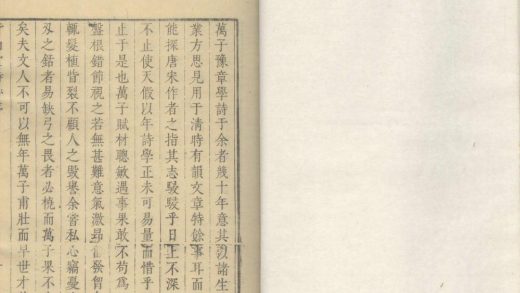 萬子豫章學詩于余者幾十年意其治諸生
業方思見用于清時有韻文章特餘事耳而
能探唐宋作者之指其志駸駸乎日上不深
不止使天假以年詩學正未可易量而惜乎
止于是也萬子賦材聰敏遇事果敢不苟為
聲根錯節視之若無甚難意氣激昂奮發胷
輒髮植眥裂不顧人之毀譽余嘗私心竊憂
刄之銛者易缺弓之畏者必橈而萬子果不
矣夫文人不可以無年萬子甫壯而早世才